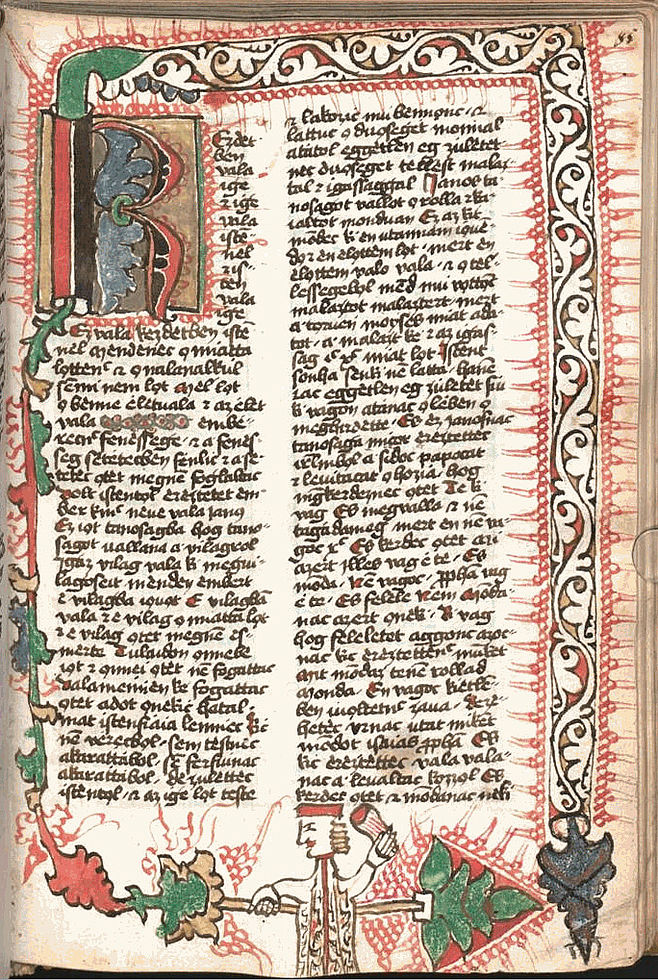 K
Ezdet
ben
vala
ige
z ige
vala
iste
nel
z is
ten
vala
ige
Ez vala kezdetben iste
nel mendenec o miatta
lottenc z o nalanalkul
semi nem lot Mel lot
o benne elet uala z az elet
vala embe
recnc fenessege z a fenes
seg setetecben fenlic z a se
tetec otet megne foglaltac
volt istentol ereztetet em
ber kinc neue vala janus
Ez iot tanosagba hog tano
sagot uallana a vilagrol
Igaz vilag vala ki megui
lagoseit menden embert
e vilagba iouot E vilagba
vala z e vilag o miatta lot
z e vilag otet megne es
merte Tulaidon onnebe
iot z onnei otet ne fogattac
Valamenien ke fogattac
otet adot onekic hatal
mat istenfiaia lenniec Kic
ne verecbol sem testnec
akarattabol se ferfiunac
akarattabol de zulettec
istentol z az ige lot teste
z lakozic mu bennonc z
lattuc o duoseget monnal
atatol eggetlen eg zuletet
nec duoseget tellest malaz
tal z igassaggal Janos ta
nosagot vallot o rolla z ka
ialtot monduan Ez az kit
mondec ki en utannam iouen
do en elottem lot mert en
elottem valo vala z o tel
lessegebol mend mu vottonc
malaztot malaztert mert
a toruen moyses miat ada
tot a malazt ke z az igas
sag miat lot Istent
sonha senki ne latta hane
az eggetlen eg zuletet fiu
ki vagon atanac o keben o
meghirdette Es ez janosnac
tanosaga micor ereztettec
ilmbol a sidoc papocat
z leuitacat o hozia hog
megkerdeznec otet Te ki
vag Es megvalla z ne
tagada meg mert en ne va
goc Es kerdec otet az
azert Illes vag e te Es
monda Ne vagoc propha vag
e te Es felele Nem monda
nac azert onek Ki vag
hog feleletet aggonc azoc
nac kic ereztettenc minket
mit mondaz tenen rollad
Monda En vagoc kietle
ben iuoltonc zaua Igeze
hetec vrnac utat miket
mondot isaias propha Es
kic ereztettec vala vala
nac a leualtac kozzol Es
kerdec otet z mondanac neki